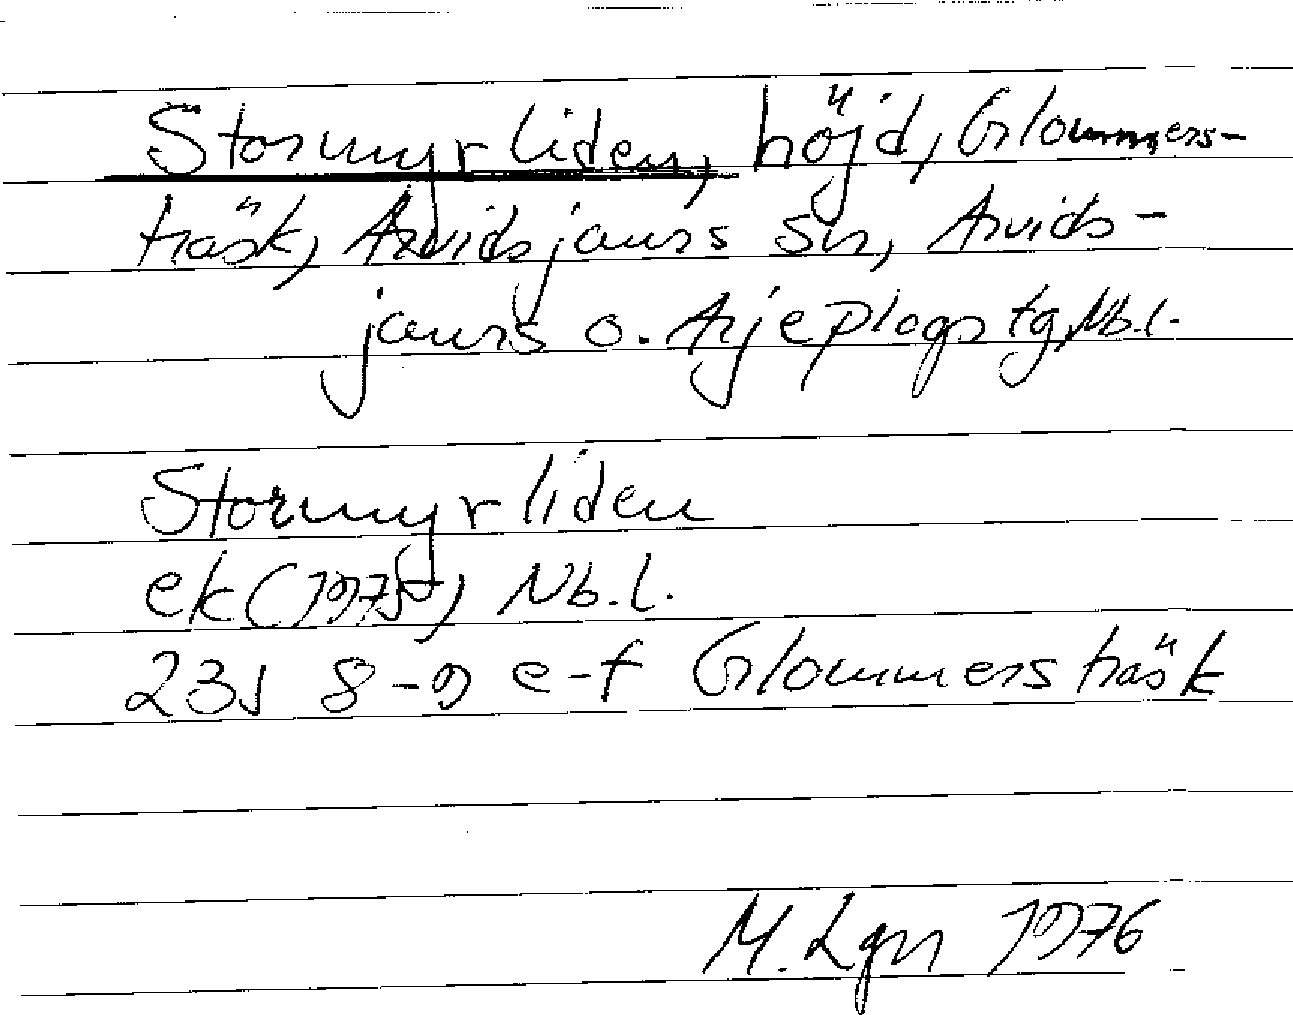 Stormyrliden, höjd, Glommers-
träsk, Arvidsjaurs sn, Arvids-
jaurs o. Arjeplogs tg, Nb.l.
Stormyrliden
ek (1975) Nb.l.
23J 8-9 e-f Glommersträsk
M. Lgn 1976